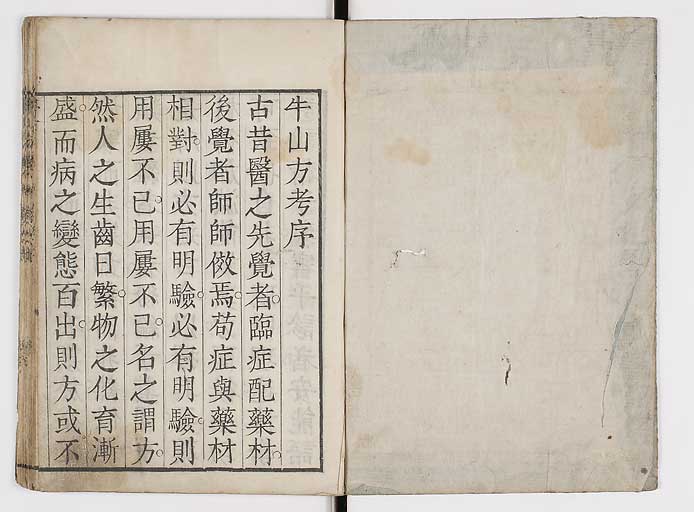 牛山方考序
古昔醫之先覺者。臨症配藥材。
後覺者師師傚焉。苟症與藥材
相對。則必有明驗。必有明驗。則
用屢不已。用屢不已。名之謂方。
然人之生齒日繁。物之化育漸
盛。而病之變態百出。則方或不